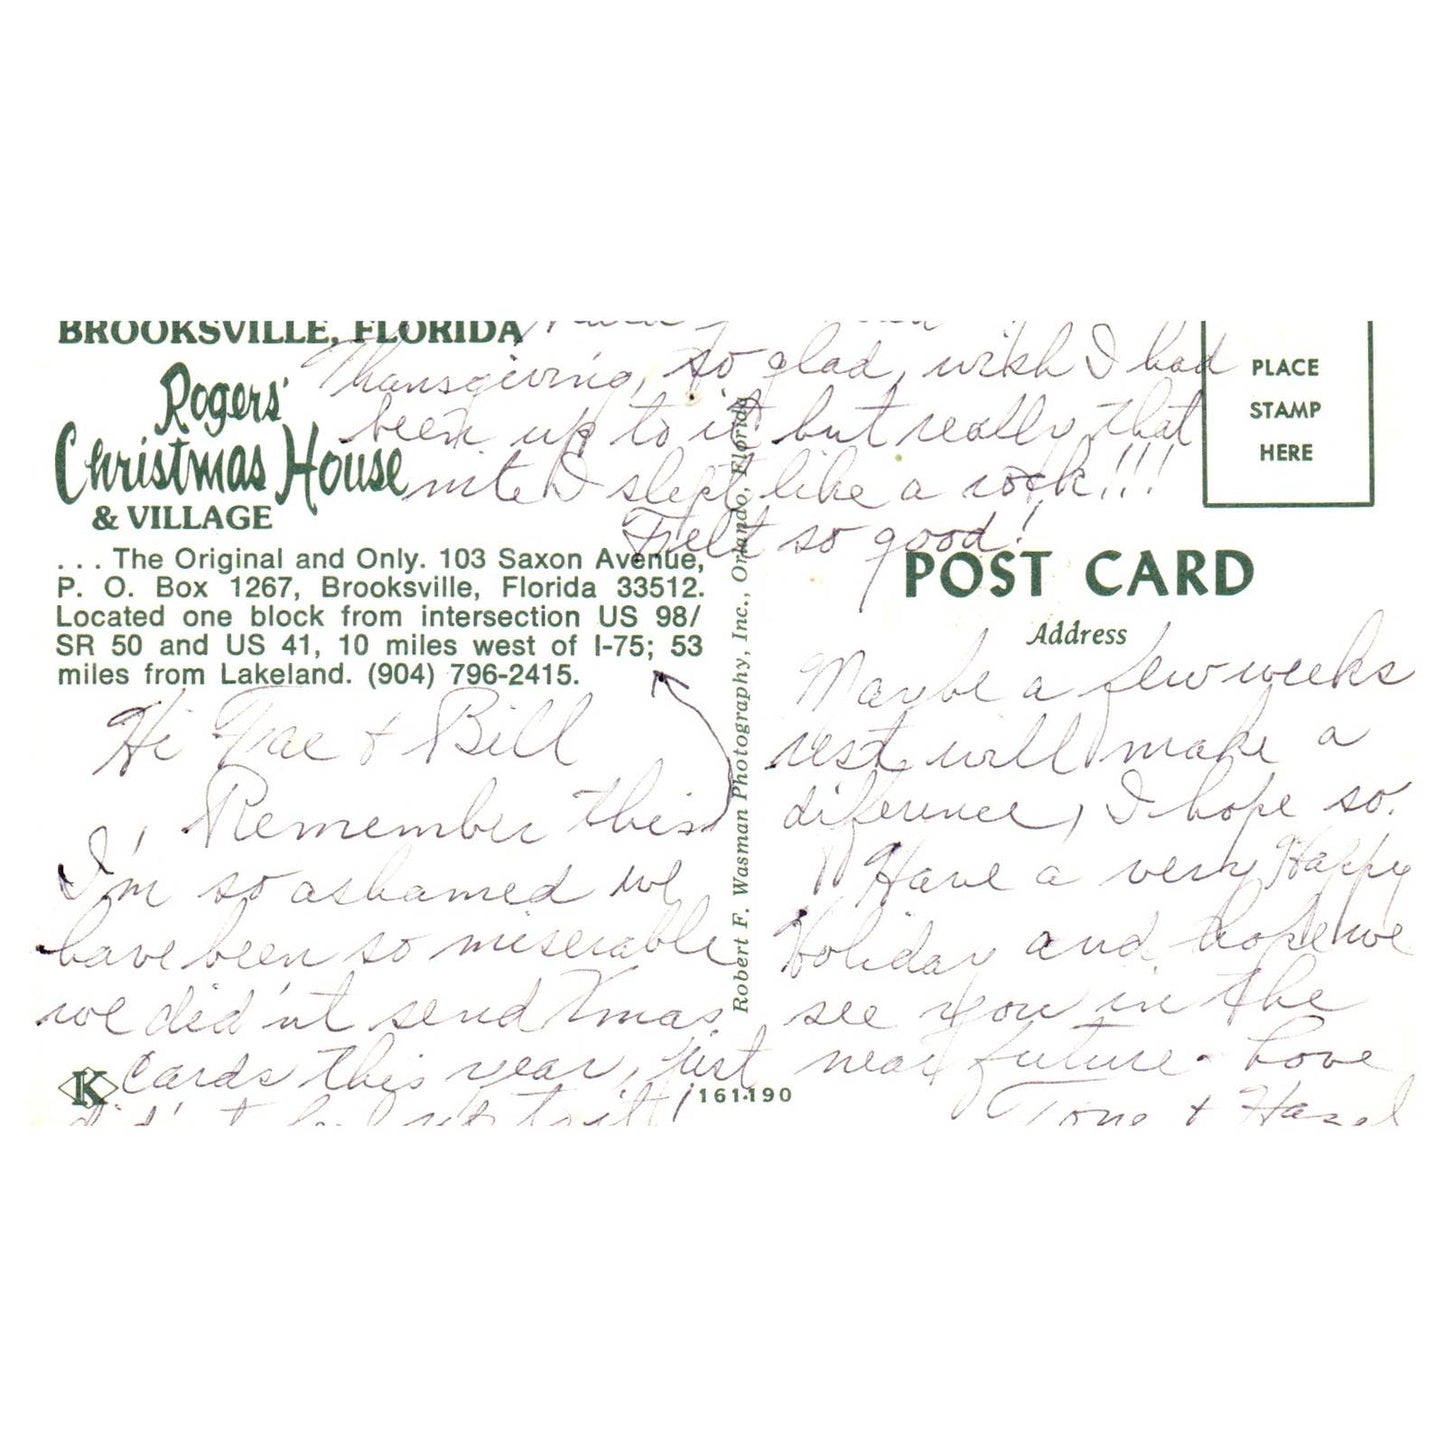 BROOKSVILLE, FLORIDA
Rogers'
Christmas House
& VILLAGE
... The Original and Only. 103 Saxon Avenue,
P. O. Box 1267, Brooksville, Florida 33512.
Located one block from intersection US 98/
SR 50 and US 41, 10 miles west of I-75; 53
miles from Lakeland. (904) 796-2415.
Hi Fae + Bill
Remember this
I'm so ashamed we
have been so miserable
we did'nt send Xmas
cards this year, just
K
161190
Robert F. Wasman Photography, Inc., Orlando, Florida
Thansgiving, so glad, wish I had
been up to it but really that
nite I slept like a rock!!!
Felt so good!
PLACE
STAMP
HERE
POST CARD
Address
Maybe a few weeks
rest will make a
diference, I hope so.
Have a very Happy
Holiday and hope we
see you in the
near future - Love
Tone + Hazel